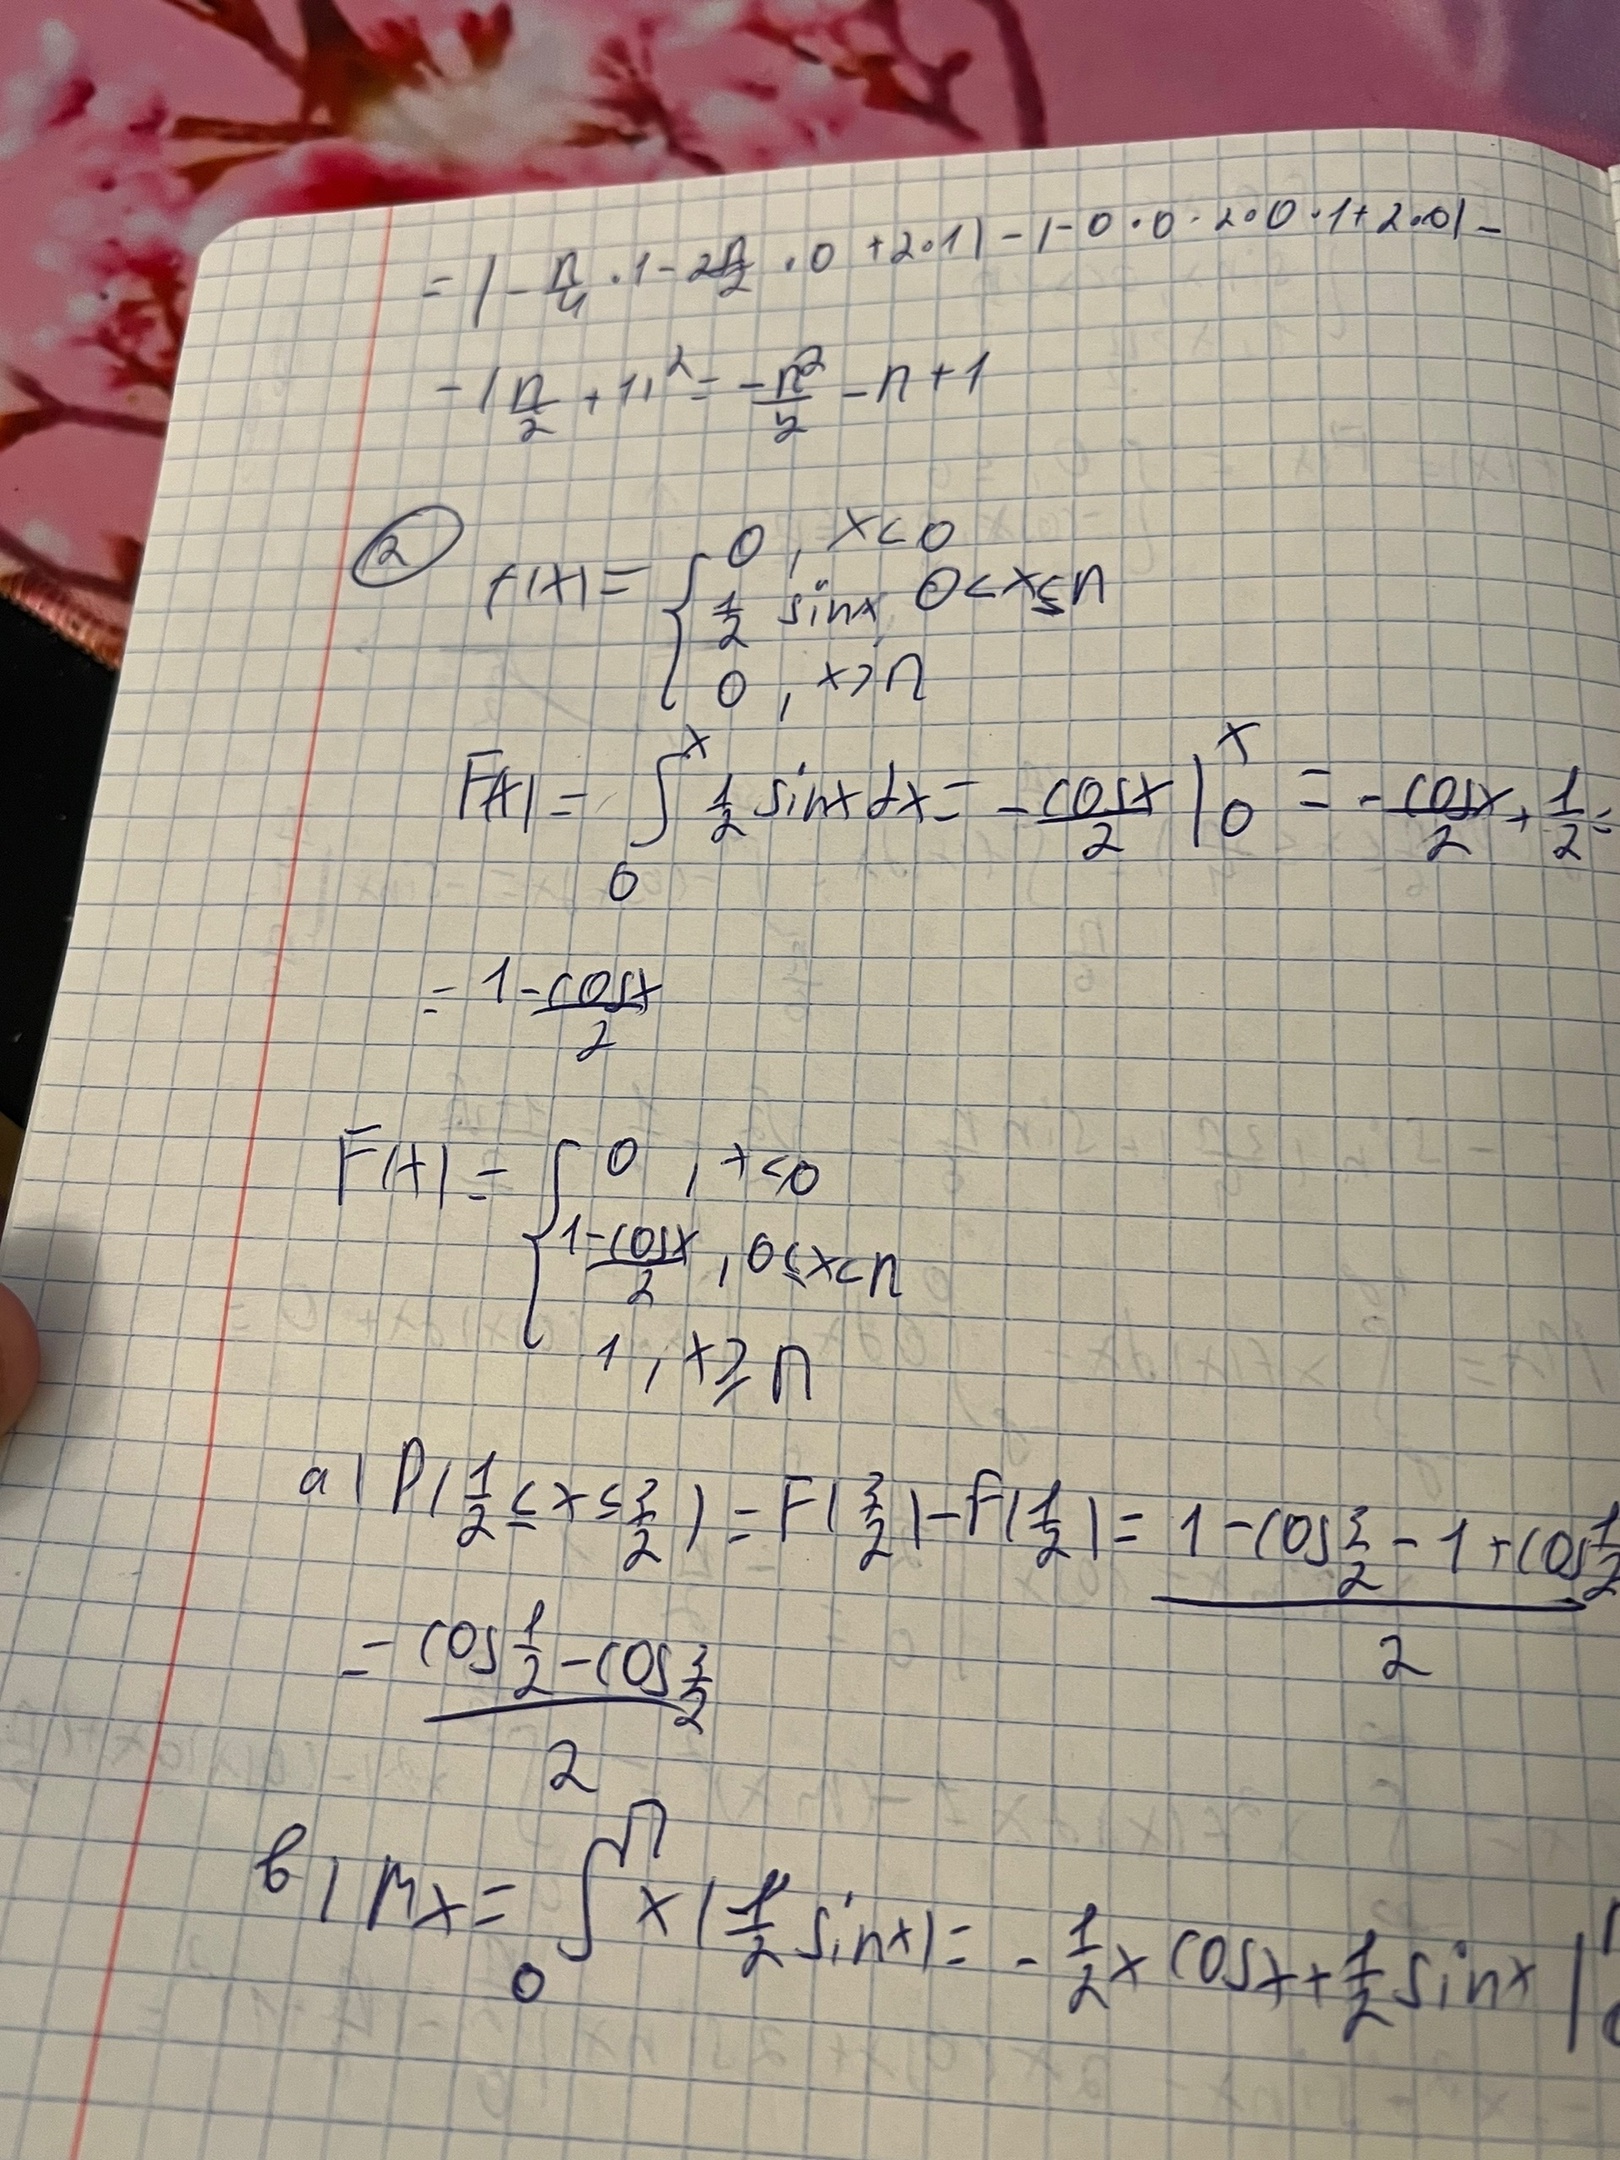 = (-п/4 · 1 - 2п/2 · 0 + 2·1) - (-0·0·2·0·1+2·0) -
- (п/2 + 1)² = -п²/2 - п + 1
② f(x) = { 0, x<0
1/2 sinx, 0<x≤п
0, x>п
F(x) = ∫₀ˣ 1/2 sinx dx = - cosx/2 |₀ˣ = - cosx/2 + 1/2 =
= 1-cosx/2
F(x) = { 0, x<0
1-cosx/2, 0≤x<п
1, x≥п
a) P(1/2 ≤ x ≤ 3/2) = F(3/2) - F(1/2) = (1-cos 3/2 - 1 + cos 1/2)/2
= (cos 1/2 - cos 3/2)/2
в) Mx = ∫₀ⁿ x(1/2 sinx) = - 1/2 x cosx + 1/2 sinx |